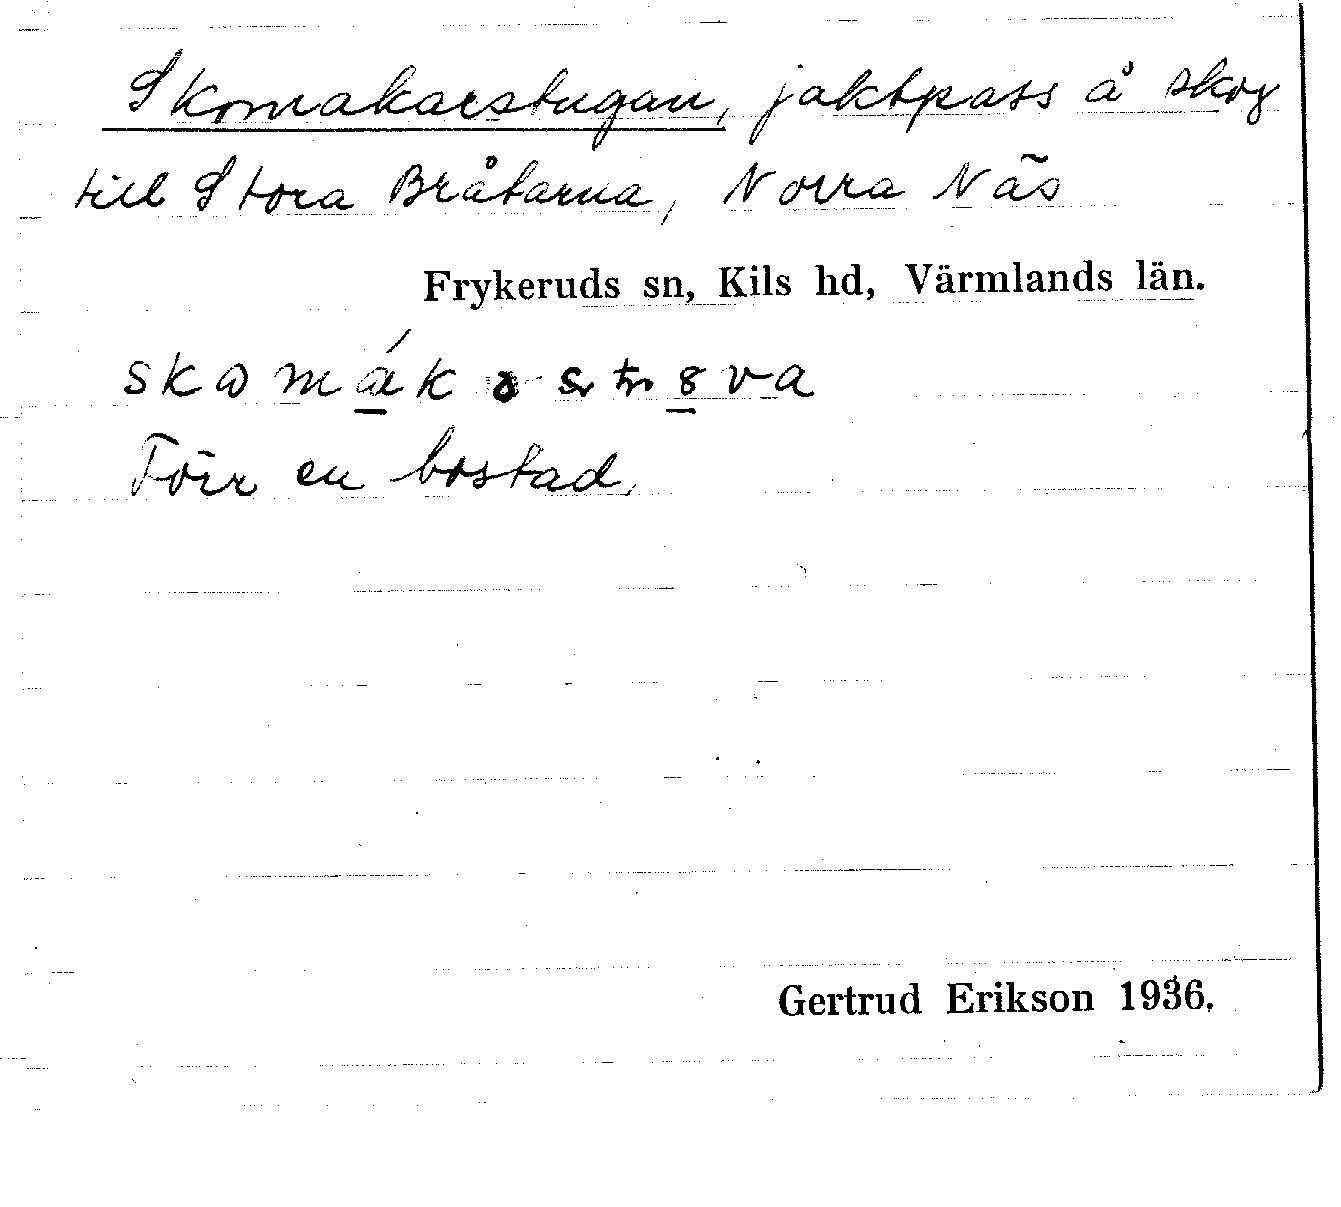 Skomakarstugan, jaktpass å skog
till Stora Bråtarna, Norra Näs
Frykeruds sn, Kils hd, Värmlands län.
Förr en bostad.
Gertrud Erikson 1936.